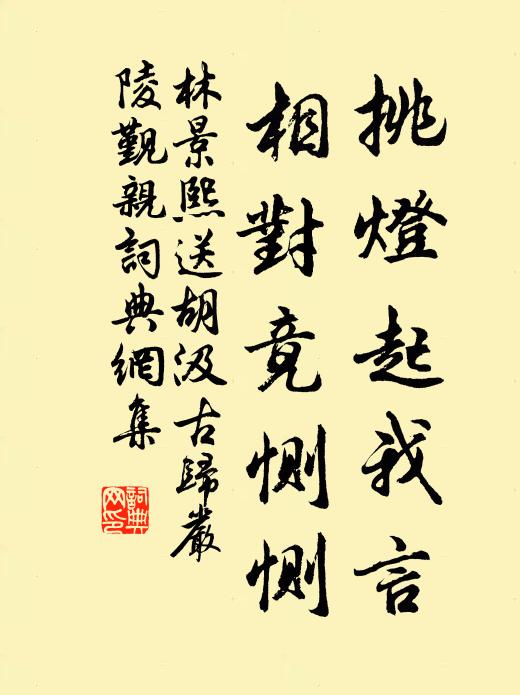 挑燈起我言
相對竟惻惻
林景熙送胡汲古歸嚴
陵觐親詞典網集
詞典
网印